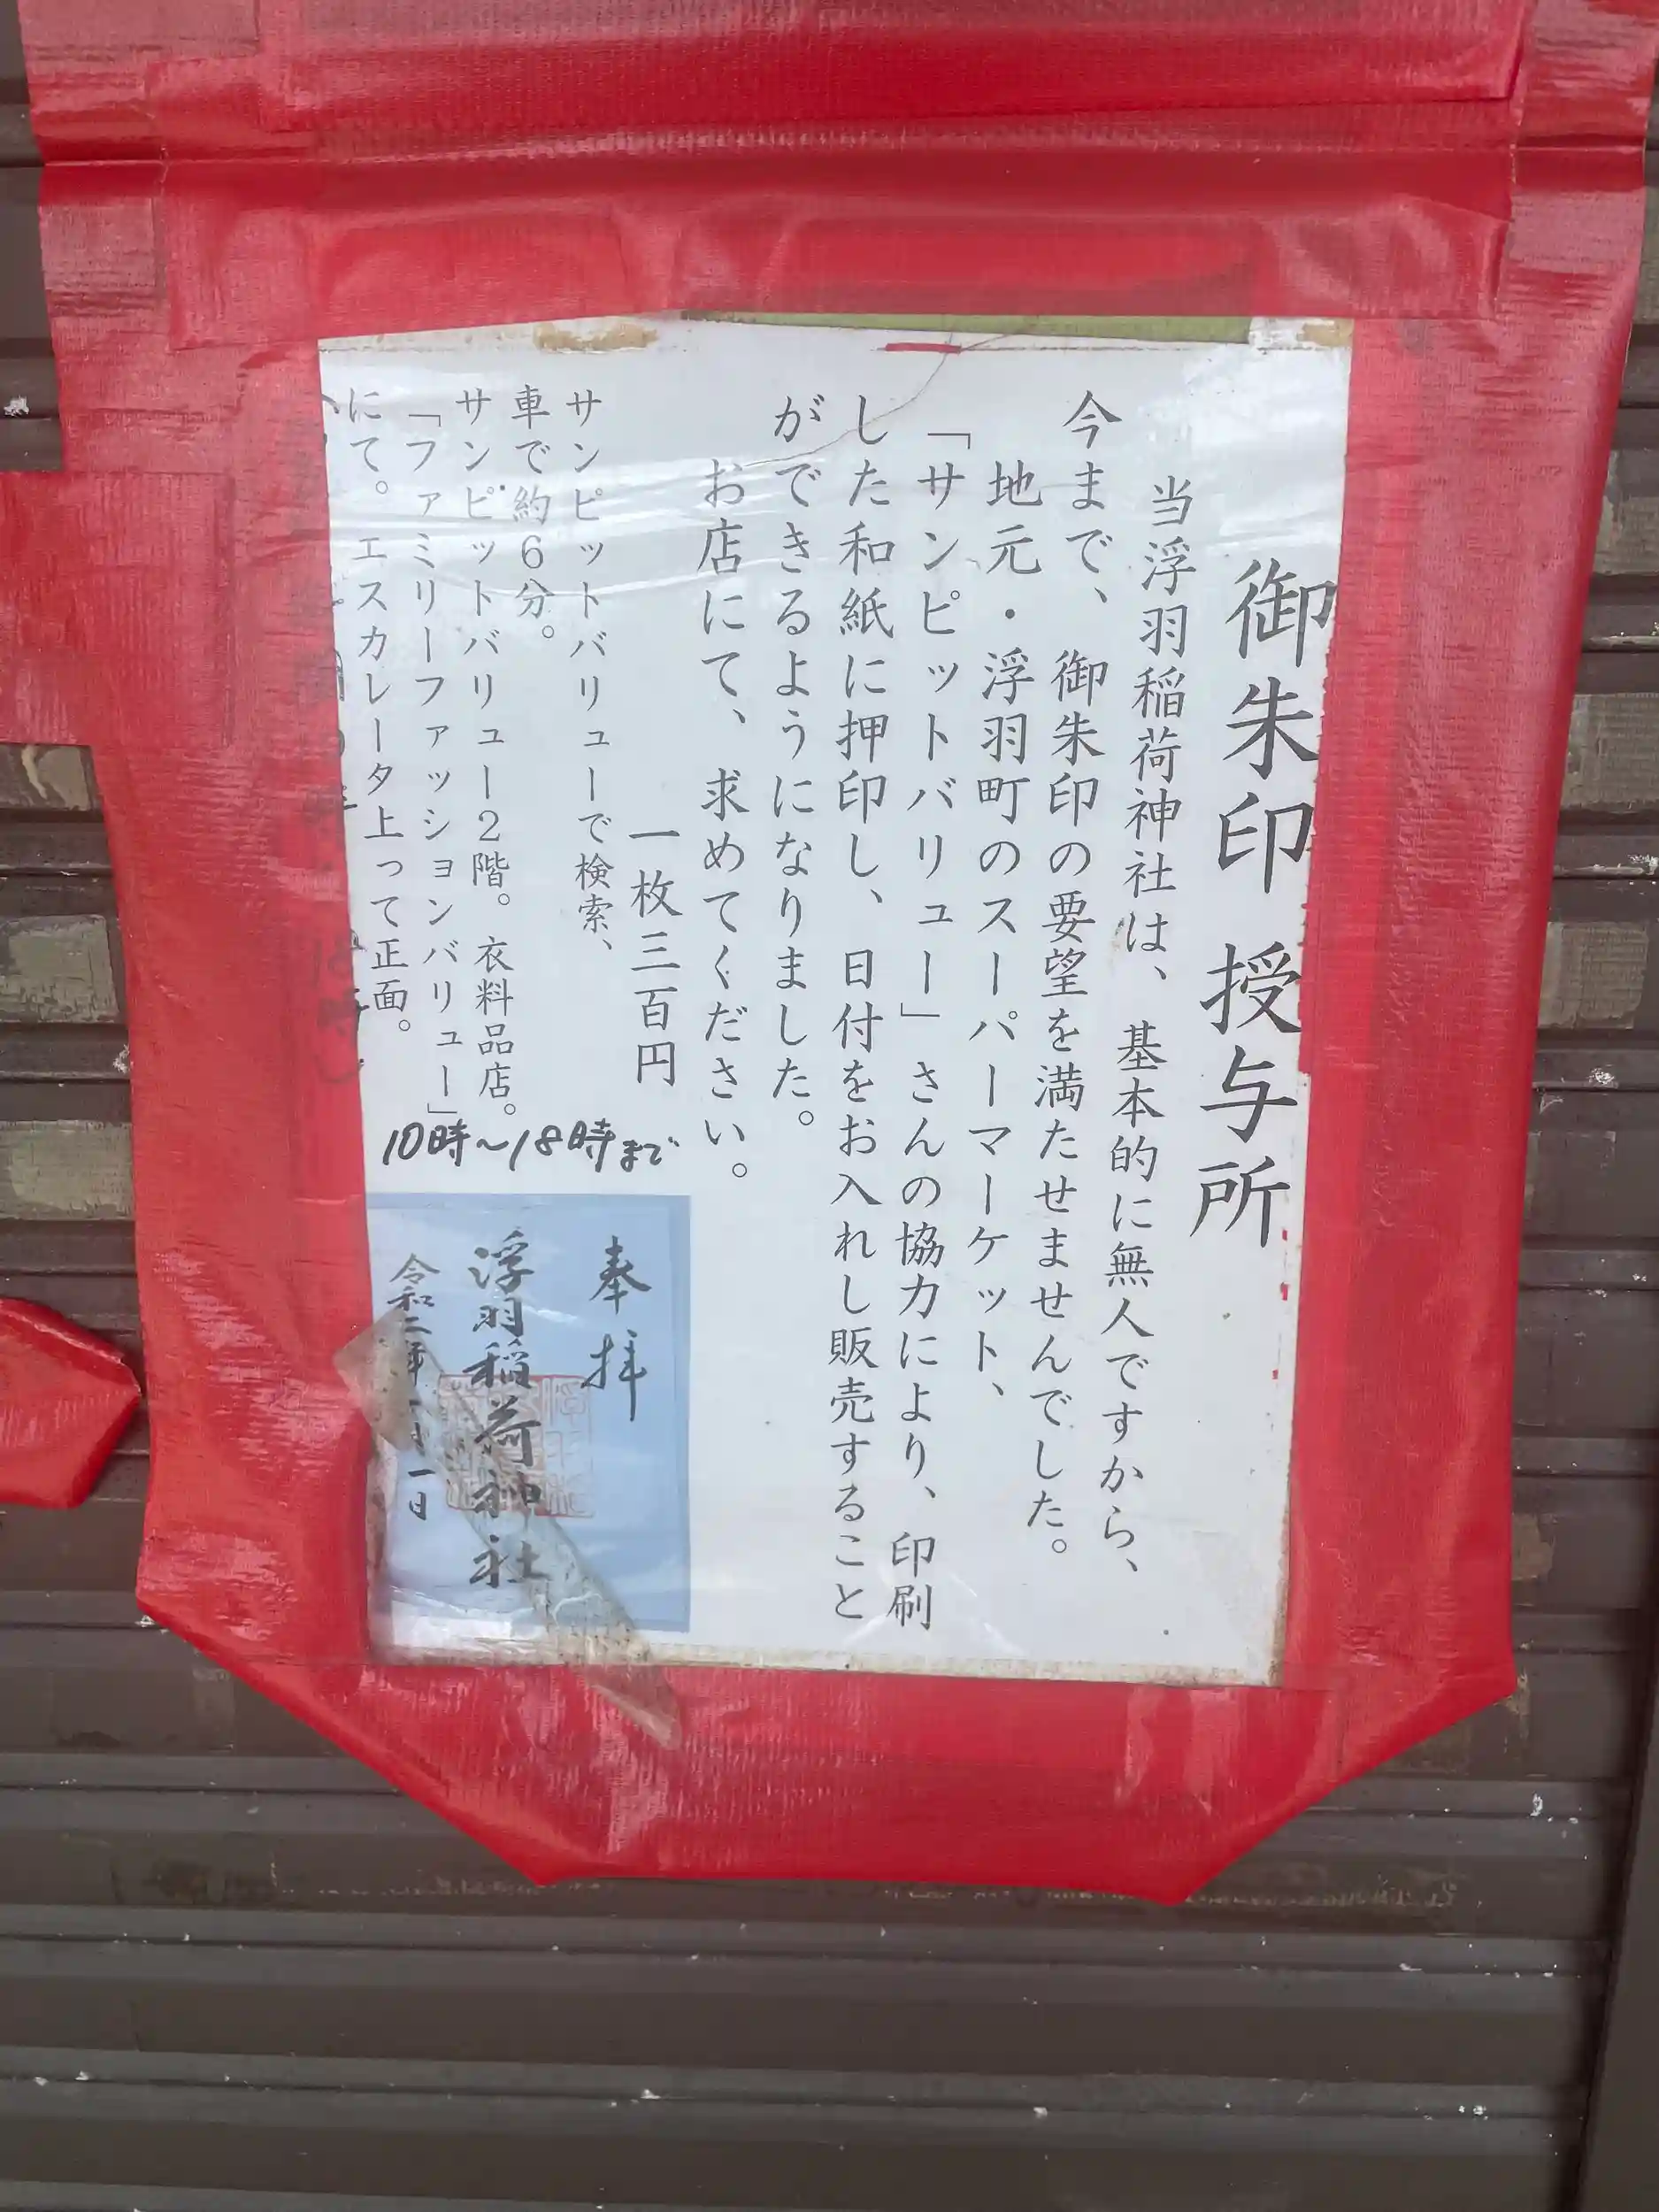 御朱印 授与所
当浮羽稲荷神社は、基本的に無人ですから、
今まで、御朱印の要望を満たせませんでした。
地元・浮羽町のスーパーマーケット、
「サンピットバリュー」さんの協力により、印刷
した和紙に押印し、日付をお入れし販売すること
ができるようになりました。
お店にて、求めてください。
一枚三百円
サンピットバリューで検索、
車で約6分。
サンピットバリュー2階。衣料品店。
「ファミリーファッションバリュー」
にて。エスカレータ上って正面。
10時〜18時まで
奉拝
浮羽稲荷神社
令和二年 月一日